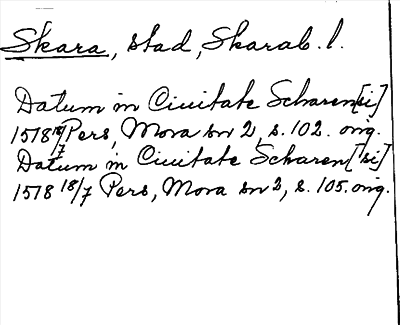 Skara, stad, Skarab. l.
Datum in Ciuitate Scharen[si]
1518 18/7 Pers, Mora sn 2, s. 102. orig.
Datum in Ciuitate Scharen[si]
1518 18/7 Pers, Mora sn 2, s. 105. orig.